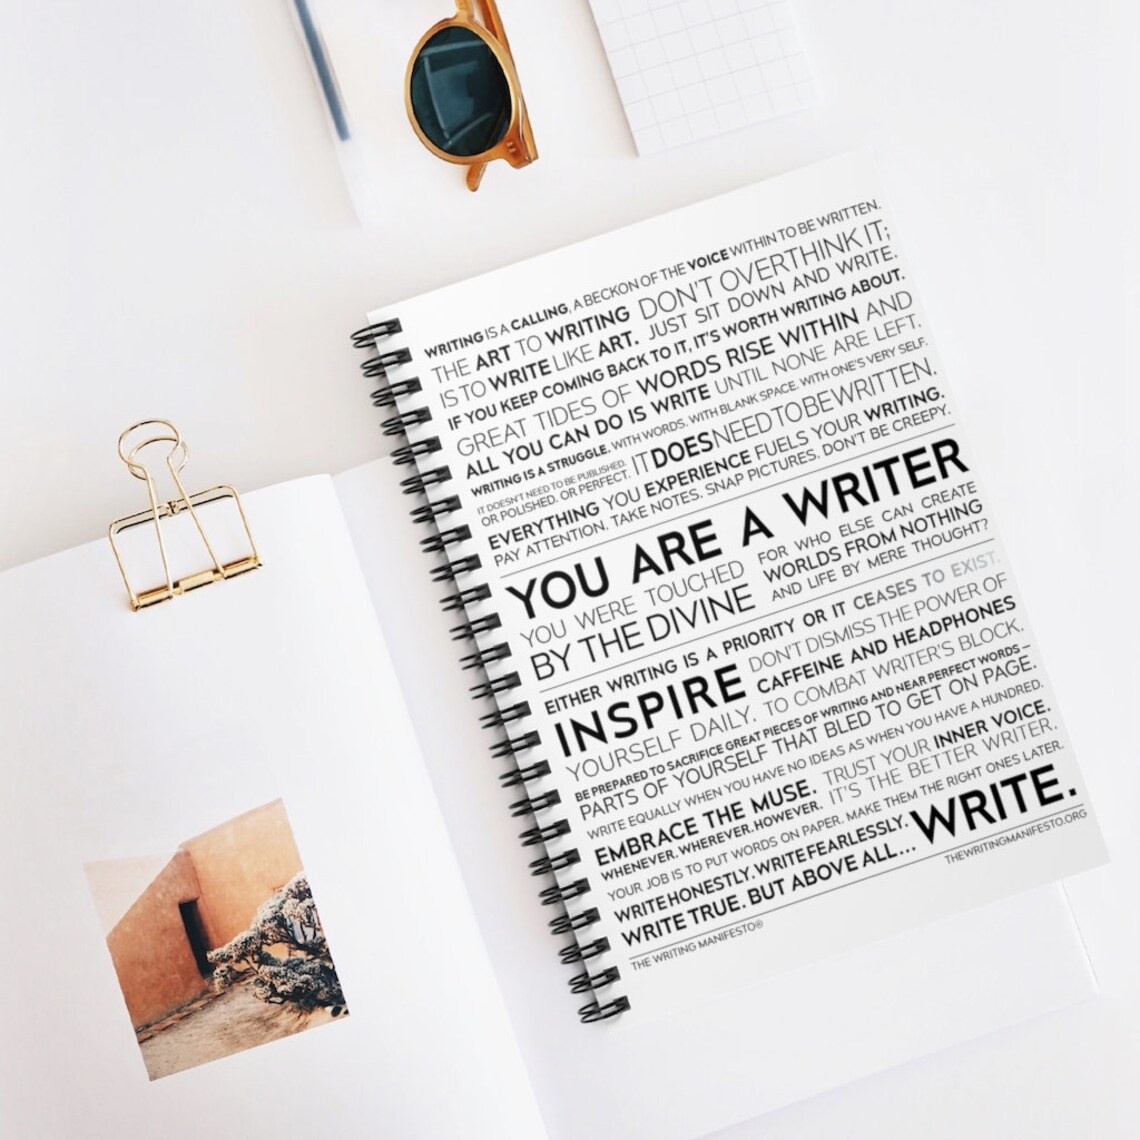 WRITING IS A CALLING, A BECKON OF THE VOICE WITHIN TO BE WRITTEN.
THE ART TO WRITING
IS TO WRITE LIKE ART.
DON'T OVERTHINK IT;
JUST SIT DOWN AND WRITE.
IF YOU KEEP COMING BACK TO IT, IT'S WORTH WRITING ABOUT.
GREAT TIDES OF WORDS RISE WITHIN AND
ALL YOU CAN DO IS WRITE UNTIL NONE ARE LEFT.
WRITING IS A STRUGGLE. WITH WORDS. WITH BLANK SPACE. WITH ONE'S VERY SELF.
IT DOESN'T NEED TO BE PUBLISHED.
OR POLISHED. OR PERFECT.
IT DOES NEED TO BE WRITTEN.
EVERYTHING YOU EXPERIENCE FUELS YOUR WRITING.
PAY ATTENTION. TAKE NOTES. SNAP PICTURES. DON'T BE CREEPY.
YOU ARE A WRITER
YOU WERE TOUCHED
BY THE DIVINE
FOR WHO ELSE CAN CREATE
WORLDS FROM NOTHING
AND LIFE BY MERE THOUGHT?
EITHER WRITING IS A PRIORITY OR IT CEASES TO EXIST.
INSPIRE
YOURSELF DAILY.
DON'T DISMISS THE POWER OF
CAFFEINE AND HEADPHONES
TO COMBAT WRITER'S BLOCK.
BE PREPARED TO SACRIFICE GREAT PIECES OF WRITING AND NEAR PERFECT WORDS –
PARTS OF YOURSELF THAT BLED TO GET ON PAGE.
WRITE EQUALLY WHEN YOU HAVE NO IDEAS AS WHEN YOU HAVE A HUNDRED.
EMBRACE THE MUSE.
WHENEVER. WHEREVER. HOWEVER.
TRUST YOUR INNER VOICE.
IT'S THE BETTER WRITER.
YOUR JOB IS TO PUT WORDS ON PAPER. MAKE THEM THE RIGHT ONES LATER.
WRITE HONESTLY. WRITE FEARLESSLY.
WRITE TRUE. BUT ABOVE ALL...
WRITE.
THE WRITING MANIFESTO®
THEWRITINGMANIFESTO.ORG